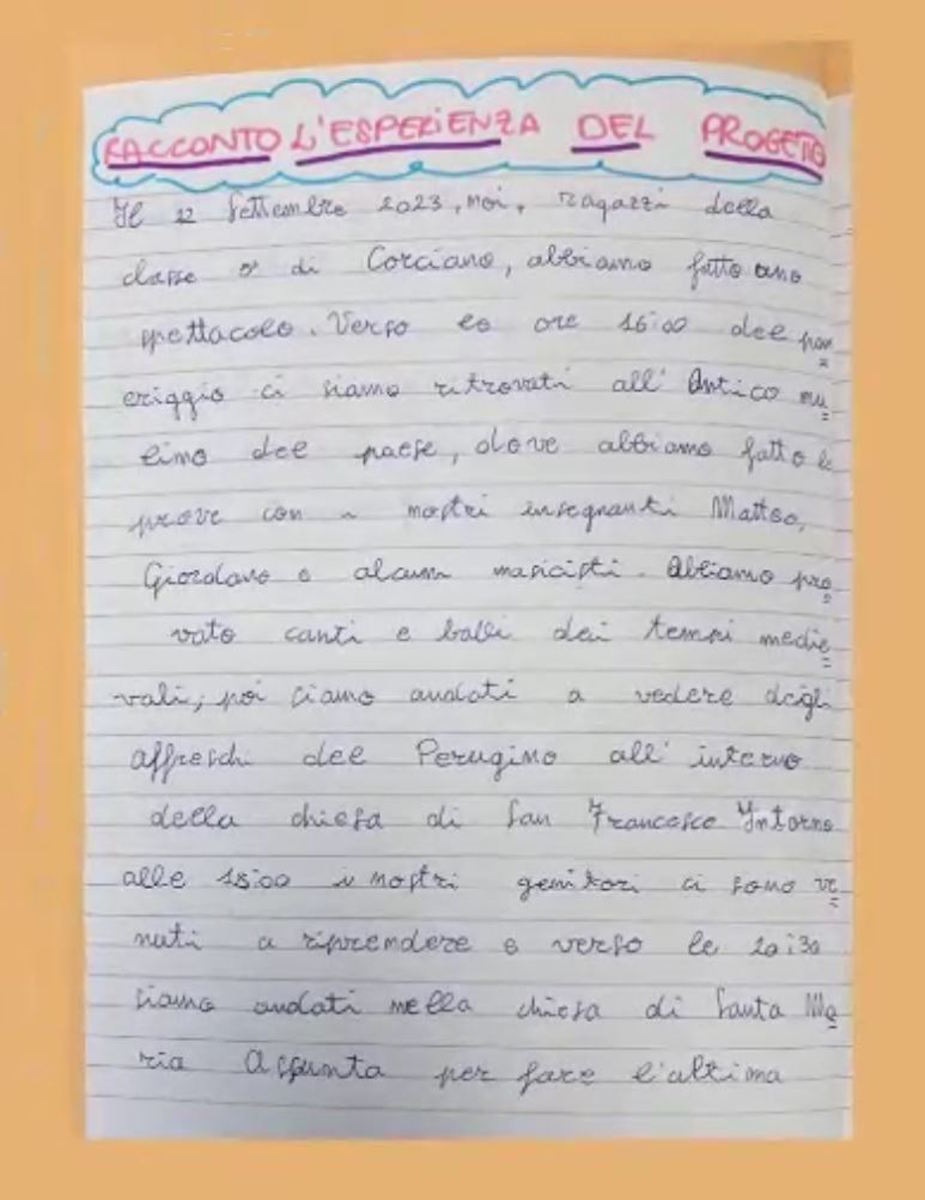 RACCONTO L'ESPERIENZA DEL PROGETTO
Il 22 Settembre 2023, noi, ragazzi della
classe 5ª di Corciano, abbiamo fatto uno
spettacolo. Verso le ore 16:00 del pom
eriggio ci siamo ritrovati all' Antico mu
lino del paese, dove abbiamo fatto le
prove con i nostri insegnanti Matteo,
Giordano e alcuni musicisti. Abbiamo pro
vato canti e balli dei tempi medie
vali; poi siamo andati a vedere degli
affreschi del Perugino all' interno
della chiesa di San Francesco Intorno
alle 18:00 i nostri genitori ci sono ve
nuti a riprendere e verso le 20:30
siamo andati nella chiesa di Santa Ma
ria Assunta per fare l'ultima